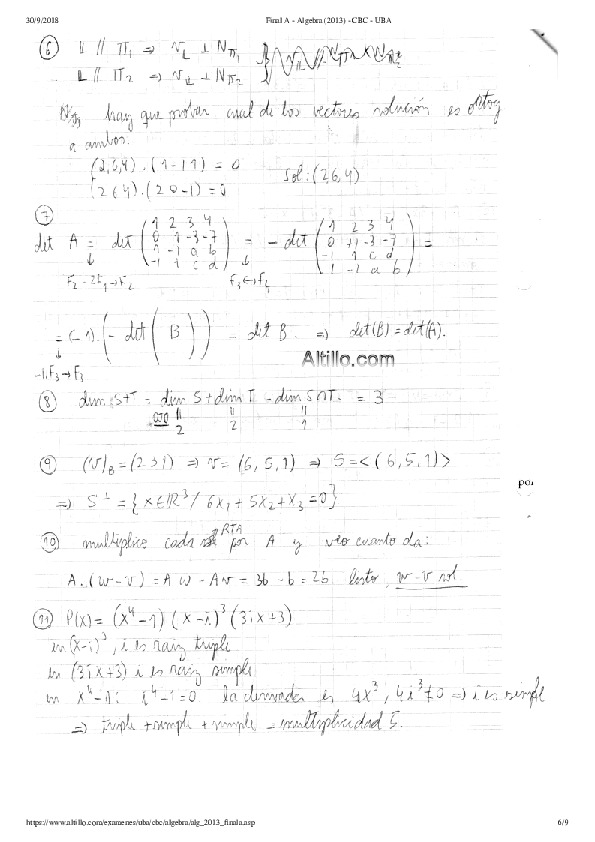 30/9/2018 Final A - Algebra (2013) - CBC - UBA
⑥ L // Π₁ ⇒ v_L ⊥ N_Π₁
L // Π₂ ⇒ v_L ⊥ N_Π₂
hay que probar cual de los vectores solución es ortog
a ambos:
(2,6,4) . (1 -1 1) = 0 Sol: (2,6,4)
(2 6 4) . (2 0 -1) = 0
⑦
det A = det (1 2 3 4 = - det (1 2 3 4 =
0 1 -3 -7 0 +1 -3 -7
1 -1 a b -1 1 c d
-1 1 c d) 1 -1 a b)
F₂ - 2F₁ → F₂ F₃ ↔ F₄
= (-1) . (- det (B)) = det B ⇒ det(B) = det(A).
-1.F₃ → F₃
Altillo.com
⑧ dim S+T = dim S + dim T - dim S∩T = 3
2 2 1
⑨ (v)_B = (2 3 1) ⇒ v = (6, 5, 1) ⇒ S = < (6, 5, 1) >
po
⇒ S^⊥ = { x ∈ ℝ³ / 6x₁ + 5x₂ + x₃ = 0 }
RTA
⑩ multiplico cada por A y veo cuanto da:
A . (w - v) = A w - A v = 3b - b = 2b listo, w - v sol
⑪ P(x) = (x⁴ - 1) (x - i)³ (3ix + 3)
en (x - i)³, i es raiz triple
en (3ix + 3) i es raiz simple
en x⁴ - 1: x⁴ - 1 = 0 la derivada es 4x³, 4i³ ≠ 0 ⇒ i es simple
⇒ triple + simple + simple = multiplicidad 5.
https://www.altillo.com/examenes/uba/cbc/algebra/alg_2013_finala.asp 6/9